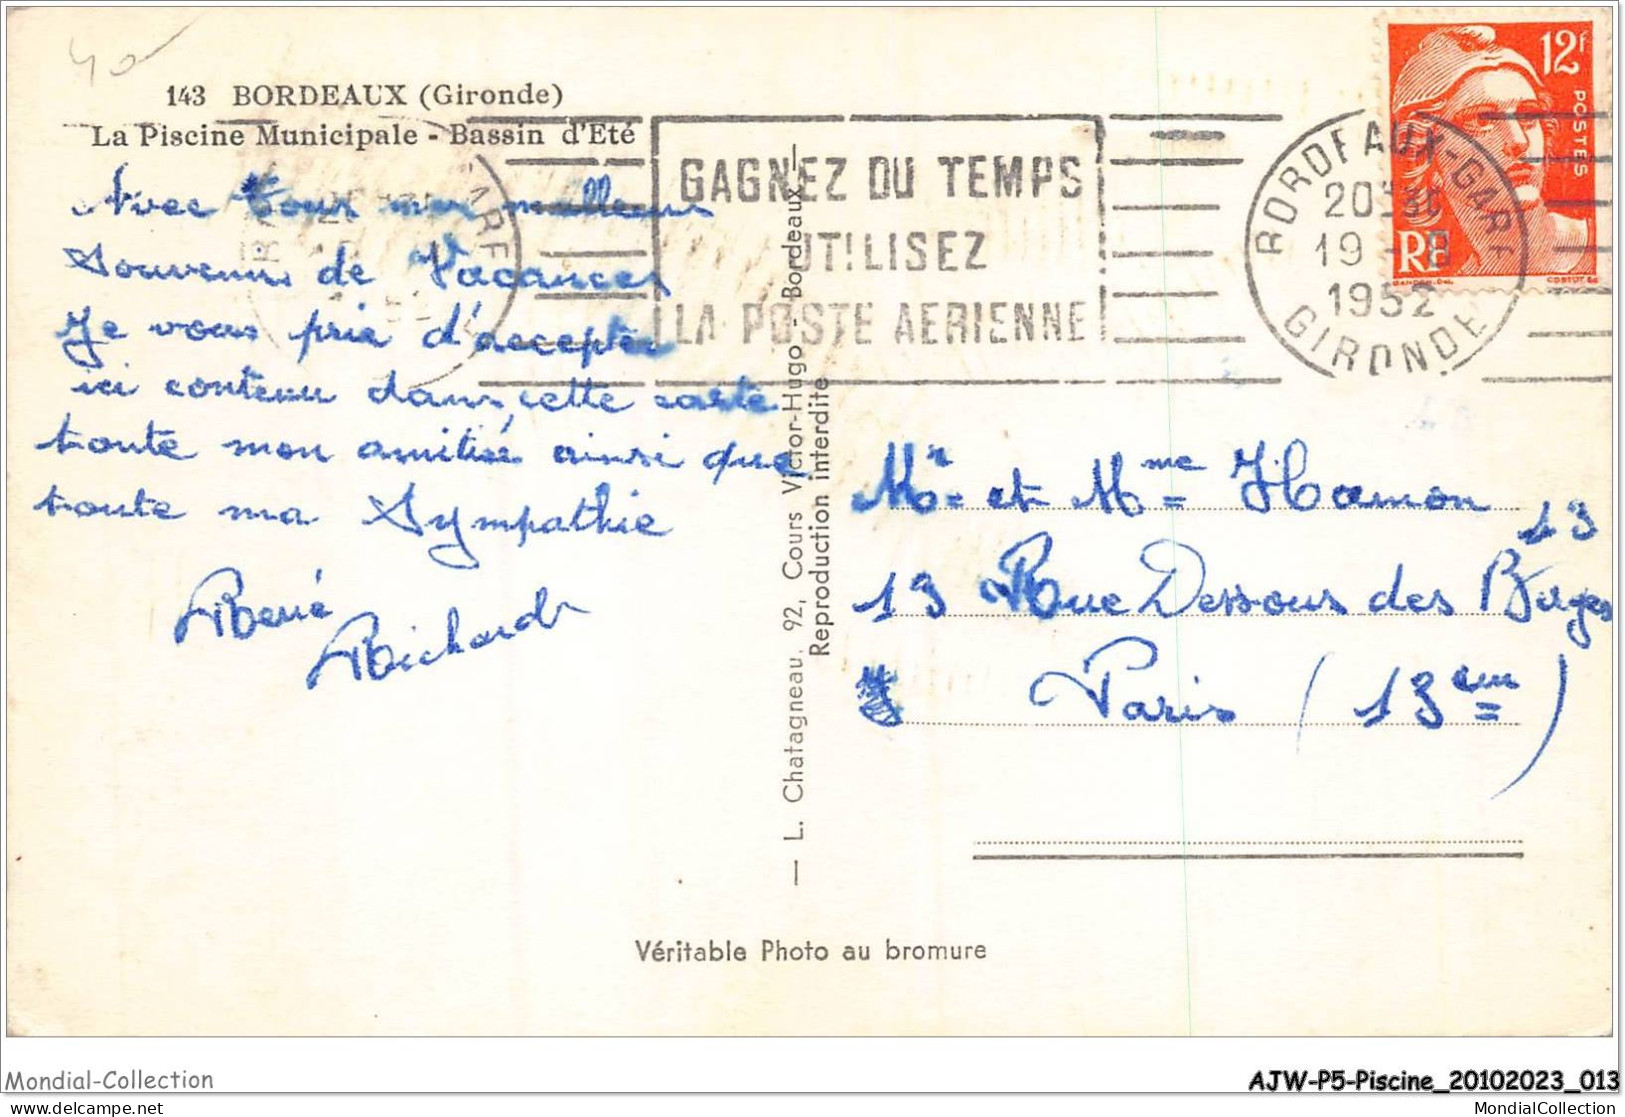 40
143 BORDEAUX (Gironde)
La Piscine Municipale - Bassin d'Eté
Avec tous mes meilleurs
Souvenirs de Vacances
Je vous prie d'accepter
ici contenu dans cette carte
toute mon amitié ainsi que
toute ma Sympathie
René
Richard
GAGNEZ DU TEMPS
UTILISEZ
LA POSTE AERIENNE
BORDEAUX-GARE
20H30
19 - 8
1952
GIRONDE
12F
POSTES
RF
GANDON.DEL
COTTET.SC
— L. Chatagneau, 92, Cours Victor-Hugo - Bordeaux —
Reproduction interdite
Mr et Mme Hamon
13
13 Rue Dessous des Berges
Paris (13em)
Véritable Photo au bromure
Mondial-Collection
AJW-P5-Piscine_20102023_013
mc199.com
MondialCollection